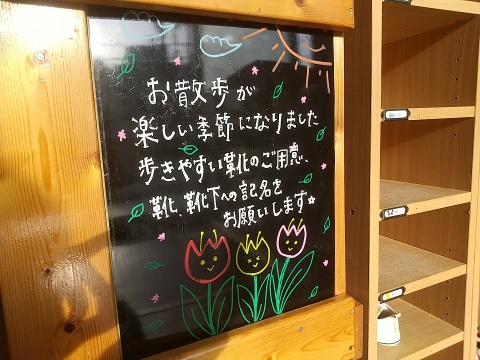 お散歩が
楽しい季節になりました
歩きやすい靴のご用意、
靴、靴下への記名を
お願いします☆